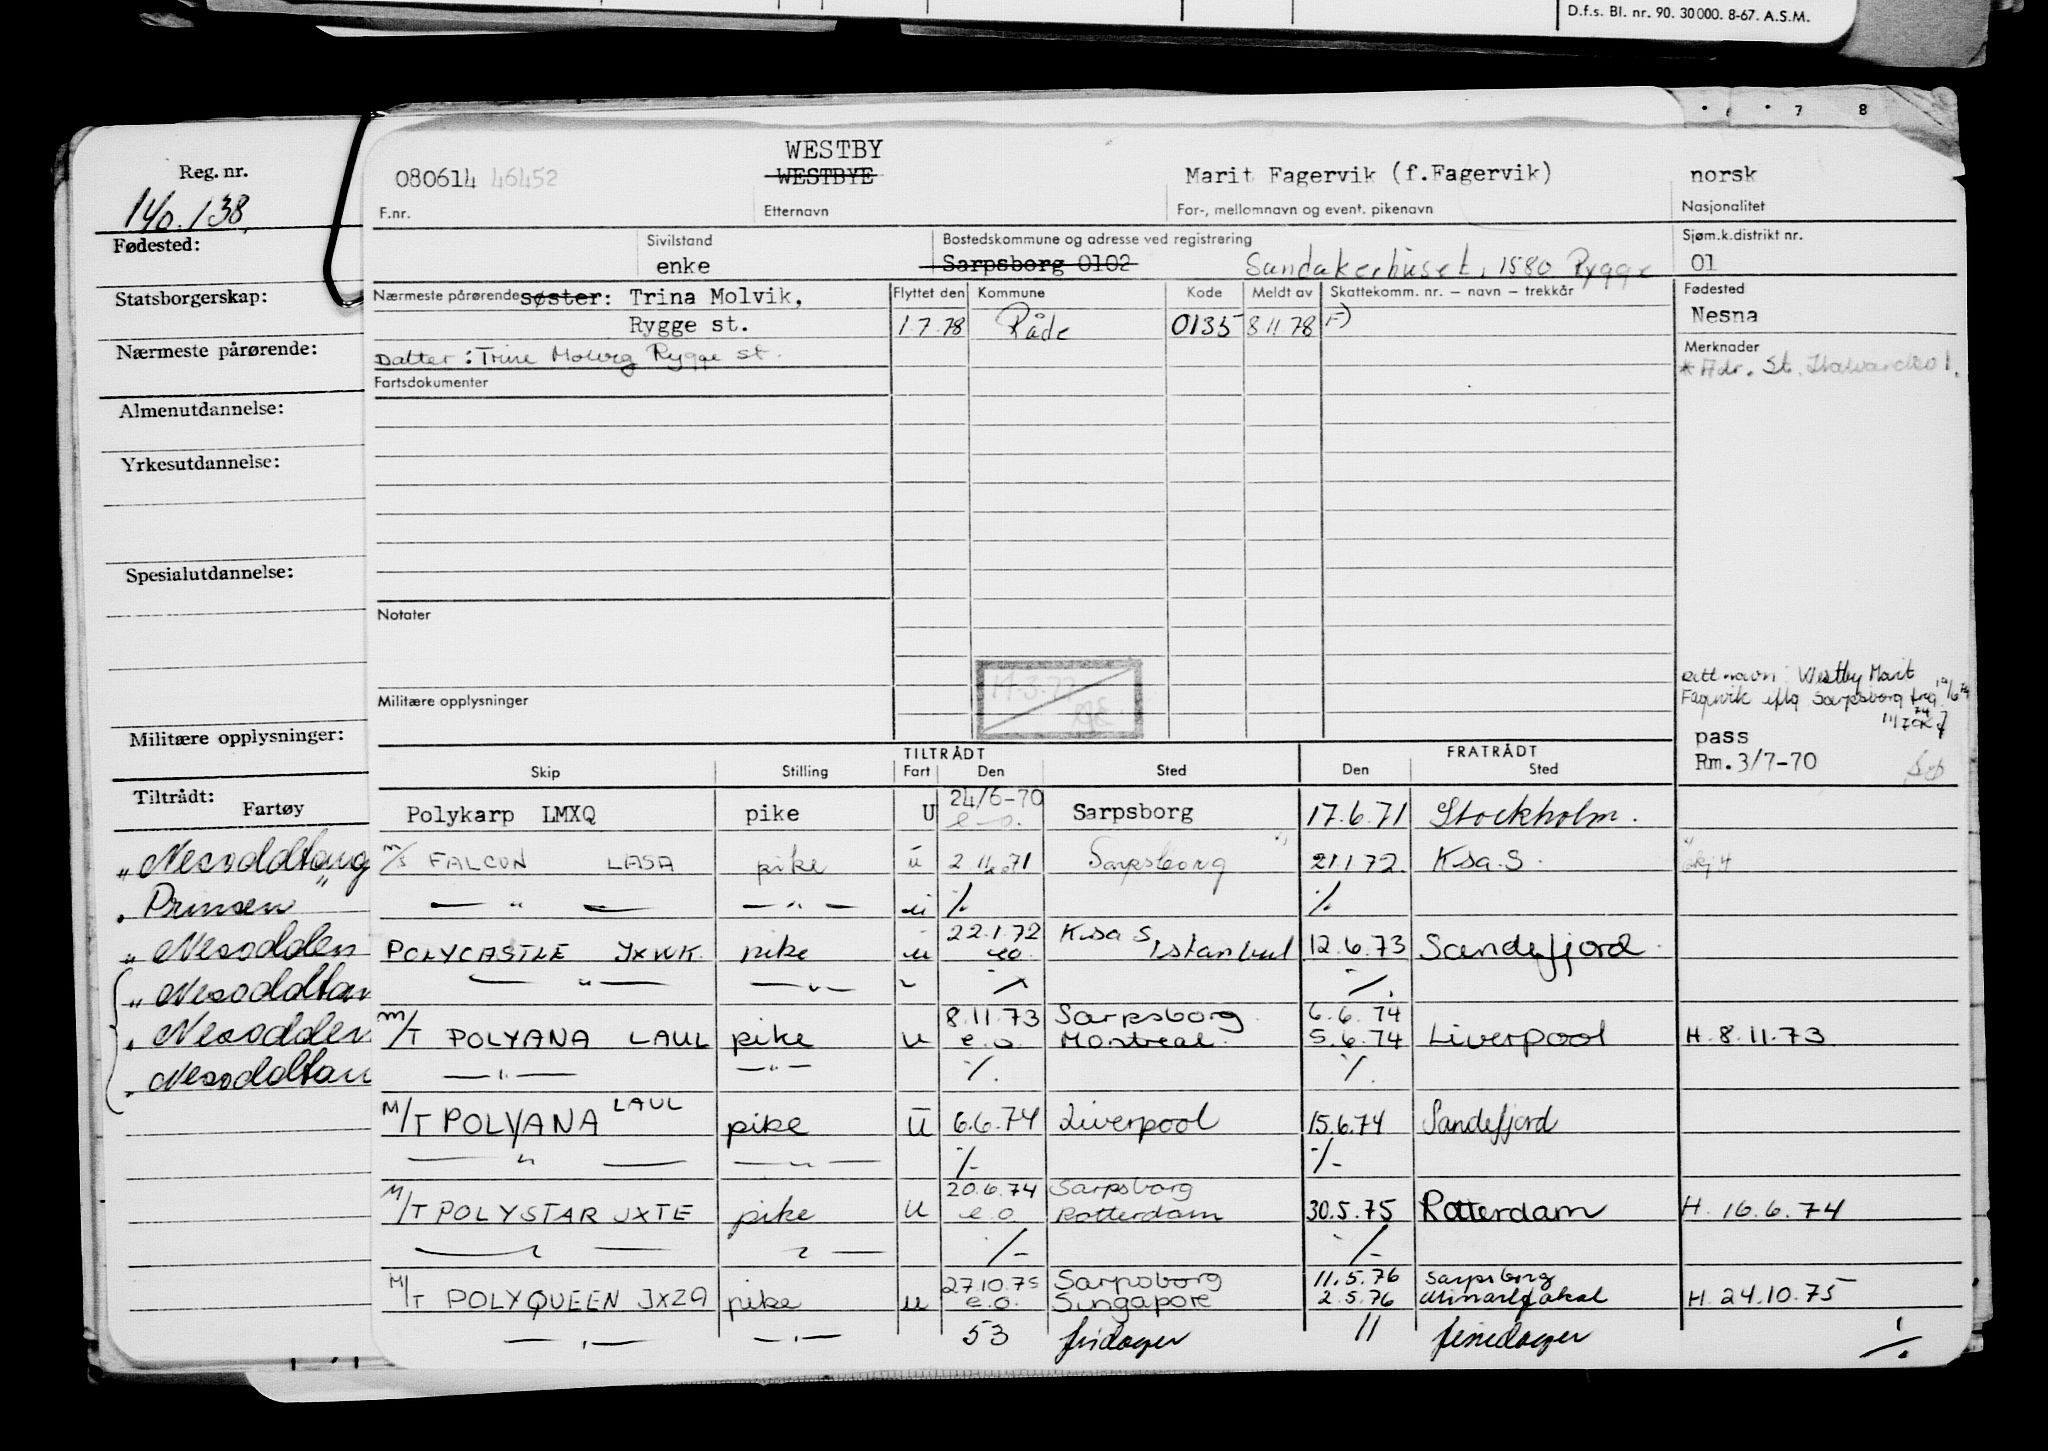 D.f.s. Bl. nr. 90. 30 000. 8-67. A.S.M.
7 8
Reg. nr.
140.138.
Fødested:
Statsborgerskap:
Nærmeste pårørende:
Almenutdannelse:
Yrkesutdannelse:
Spesialutdannelse:
Militære opplysninger:
Tiltrådt:
Fartøy
" Nesoddtang
" Prinsen
" Nesodden
" Nesoddtan
" Nesodden
" Nesoddtan
080614 46452
F.nr.
WESTBY
WESTBYE
Etternavn
Marit Fagervik (f.Fagervik)
For-, mellomnavn og event. pikenavn
norsk
Nasjonalitet
Sivilstand
enke
Bostedskommune og adresse ved registrering
Sarpsborg 0102 Sandakerhuset, 1580 Rygge
Sjøm.k.distrikt nr.
01
Nærmeste pårørende søster: Trina Molvik,
Rygge st.
Datter: Trine Molvig Rygge st.
Flyttet den Kommune Kode Meldt av Skattekomm. nr. – navn – trekkår
1.7.78 Råde 0135 8 11 78 F)
Fødested
Nesna
Merknader
* Adr. St.
Fartsdokumenter
Notater
Militære opplysninger
Rett navn: Westby Marit
Fagervik iflg Sarpsborg
pass
Rm. 3/7-70
TILTRÅDT FRATRÅDT
Skip Stilling Fart Den Sted Den Sted
Polykarp LMXQ pike U 24/6-70 e.o. Sarpsborg 17.6.71 Stockholm.
M/S FALCON LASA pike u 2 11 71 Sarpsborg 21.1.72. Ksa.S.
— " — — " — u ·/. ·/.
22.1.72 Ksa S,
POLYCASTLE JXWK. pike u eo Istanbul 12.6.73 Sandefjord.
— " — — " — " ·/. ·/.
8.11.73 Sarpsborg. 6.6.74
M/T POLYANA LAUL pike u e.o. Montreal. 5.6.74 Liverpool H. 8.11.73
— " — — " — ·/. ·/.
M/T POLYANA LAUL pike U 6.6.74 Liverpool 15.6.74 Sandefjord
— " — — " — ·/. ·/.
20.6.74 Sarpsborg
M/T POLYSTAR JXTE pike u e.o Rotterdam 30.5.75 Rotterdam H. 16.6.74
— " — — " — ·/. ·/.
27.10.75 Sarpsborg 11.5.76 Sarpsborg
M/T POLYQUEEN JXZQ pike u e.o. Singapore 2.5.76 H. 24.10.75
— " — — " — 53 fridager 11 feriedager ·/.